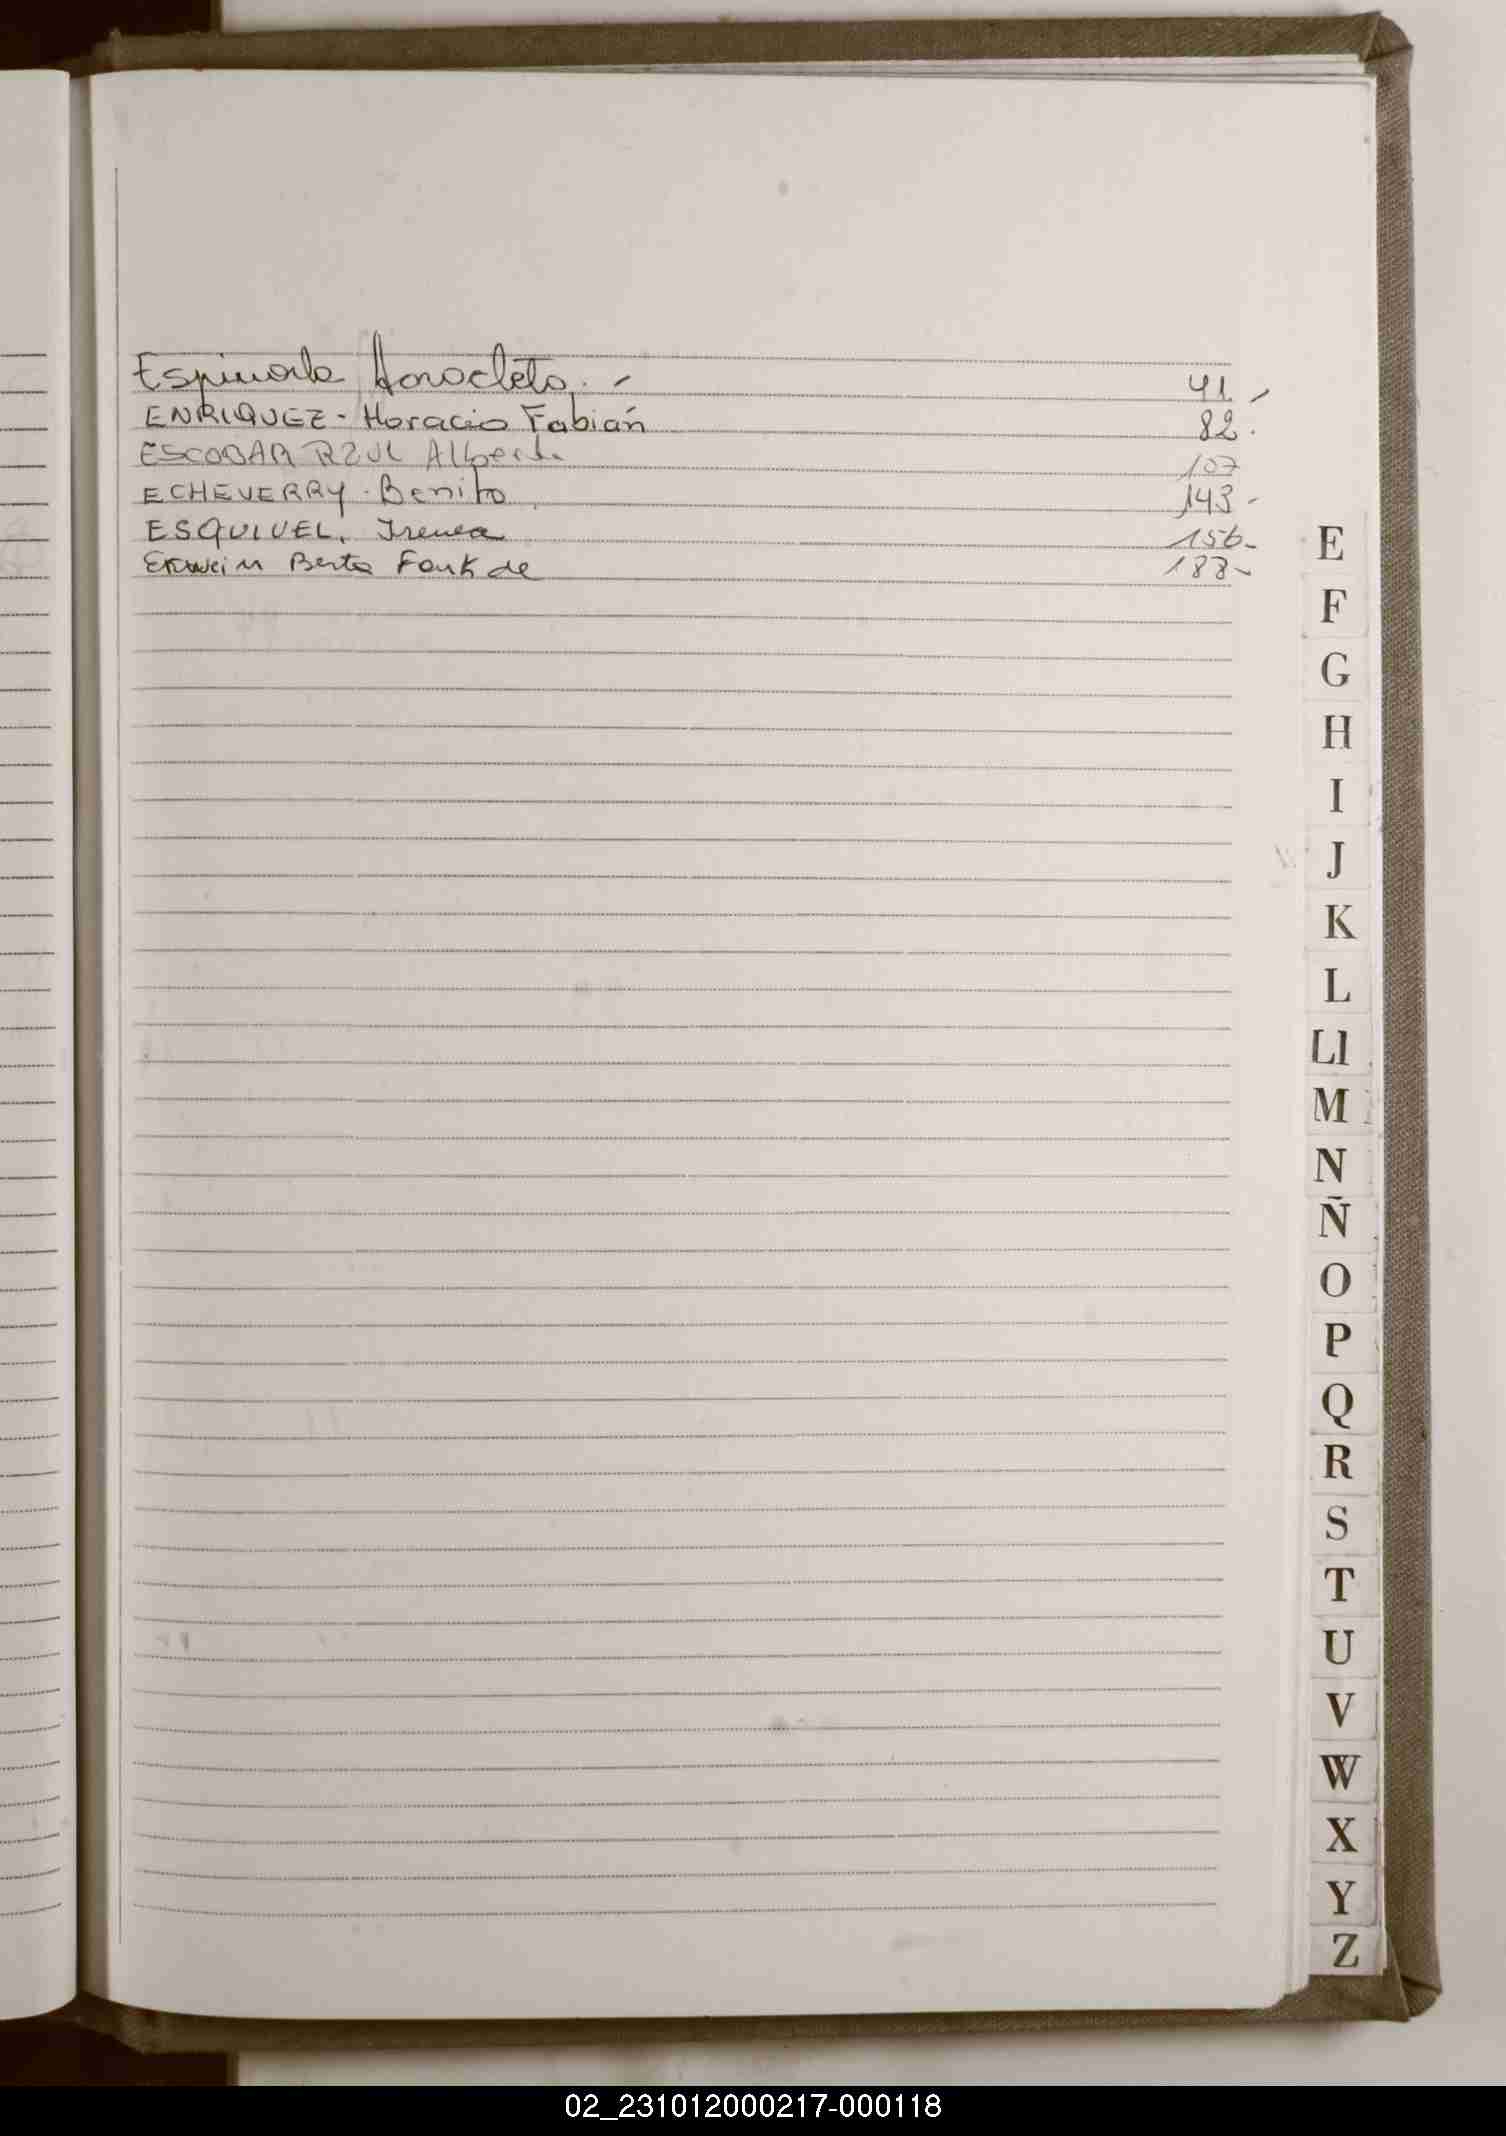 Espinola Anacleto. - 41. -
ENRIQUEZ - Horacio Fabián 82.
ESCOBAR RAUL Alberto 107
ECHEVERRY - Benito 143 -
ESQUIVEL. Irenea 156 -
Berta Fank de 188 -
E
F
G
H
I
J
K
L
Ll
M
N
Ñ
O
P
Q
R
S
T
U
V
W
X
Y
Z
02_231012000217-000118